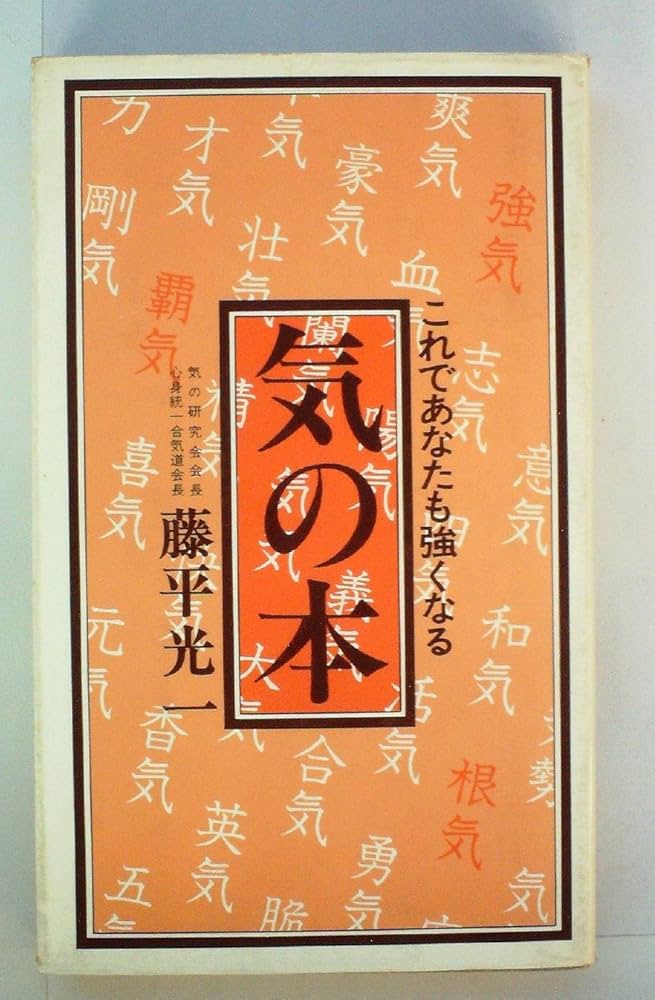 これであなたも強くなる
気の本
気の研究会会長
心身統一合気道会長
藤平光一
強気
爽気
志気
意気
和気
根気
血気
豪気
壮気
才気
剛気
覇気
闌気
陽気
精気
義気
喜気
元気
大気
活気
香気
合気
英気
勇気
五気
脆
勢
気